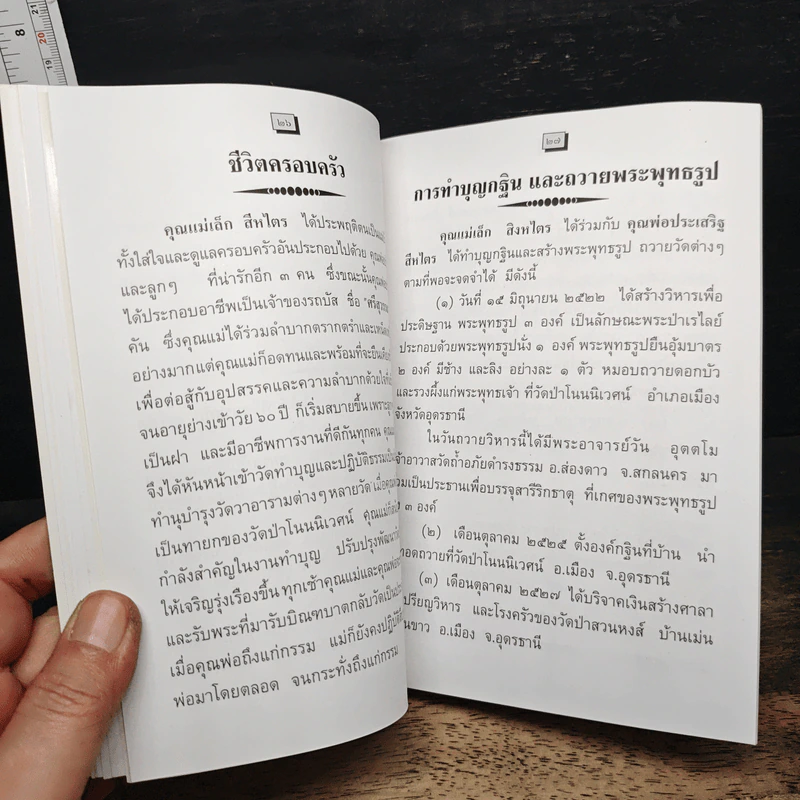 8
20
21
๒๖
ชีวิตครอบครัว
คุณแม่เล็ก สีหไตร ได้ประพฤติตนเป็นแม่
ทั้งใส่ใจและดูแลครอบครัวอันประกอบไปด้วย
และลูกๆ ที่น่ารักอีก ๓ คน ซึ่งขณะนั้น
ได้ประกอบอาชีพเป็นเจ้าของรถบัส ชื่อ
คัน ซึ่งคุณแม่ได้ร่วมลำบากตรากตรำและ
อย่างมากแต่คุณแม่ก็อดทนและพร้อมที่จะยืน
เพื่อต่อสู้กับอุปสรรคและความลำบากด้วย
จนอายุย่างเข้าวัย ๖๐ ปี ก็เริ่มสบายขึ้น เพราะ
เป็นฝา และมีอาชีพการงานที่ดีกันทุกคน
จึงได้หันหน้าเข้าวัดทำบุญและปฏิบัติธรรม
ทำนุบำรุงวัดวาอารามต่างๆ หลายวัด
เป็นทายกของวัดป่าโนนนิเวศน์ คุณแม่ก็
กำลังสำคัญในงานทำบุญ ปรับปรุงพัฒนา
ให้เจริญรุ่งเรืองขึ้น ทุกเช้าคุณแม่และคุณพ่อ
และรับพระที่มารับบิณฑบาตกลับวัดเป็น
เมื่อคุณพ่อถึงแก่กรรม แม่ก็ยังคงปฏิบัติ
พ่อมาโดยตลอด จนกระทั่งถึงแก่กรรม
๒๗
การทำบุญกฐิน และถวายพระพุทธรูป
คุณแม่เล็ก สิงหไตร ได้ร่วมกับ คุณพ่อประเสริฐ
สีหไตร ได้ทำบุญกฐินและสร้างพระพุทธรูป ถวายวัดต่างๆ
ตามที่พอจะจดจำได้ มีดังนี้
(๑) วันที่ ๑๕ มิถุนายน ๒๕๒๒ ได้สร้างวิหารเพื่อ
ประดิษฐาน พระพุทธรูป ๓ องค์ เป็นลักษณะพระป่าเรไลย์
ประกอบด้วยพระพุทธรูปนั่ง ๑ องค์ พระพุทธรูปยืนอุ้มบาตร
๒ องค์ มีช้าง และลิง อย่างละ ๑ ตัว หมอบถวายดอกบัว
และรวงผึ้งแก่พระพุทธเจ้า ที่วัดป่าโนนนิเวศน์ อำเภอเมือง
จังหวัดอุดรธานี
ในวันถวายวิหารนี้ได้มีพระอาจารย์วัน อุตตโม
เจ้าอาวาสวัดถ้ำอภัยดำรงธรรม อ.ส่องดาว จ.สกลนคร มา
เป็นประธานเพื่อบรรจุสารีริกธาตุ ที่เกศของพระพุทธรูป
๓ องค์
(๒) เดือนตุลาคม ๒๕๒๕ ตั้งองค์กฐินที่บ้าน นำ
ทอดถวายที่วัดป่าโนนนิเวศน์ อ.เมือง จ.อุดรธานี
(๓) เดือนตุลาคม ๒๕๒๗ ได้บริจาคเงินสร้างศาลา
เปรียญวิหาร และโรงครัวของวัดป่าสวนหงส์ บ้านเม่น
อ.เมือง จ.อุดรธานี